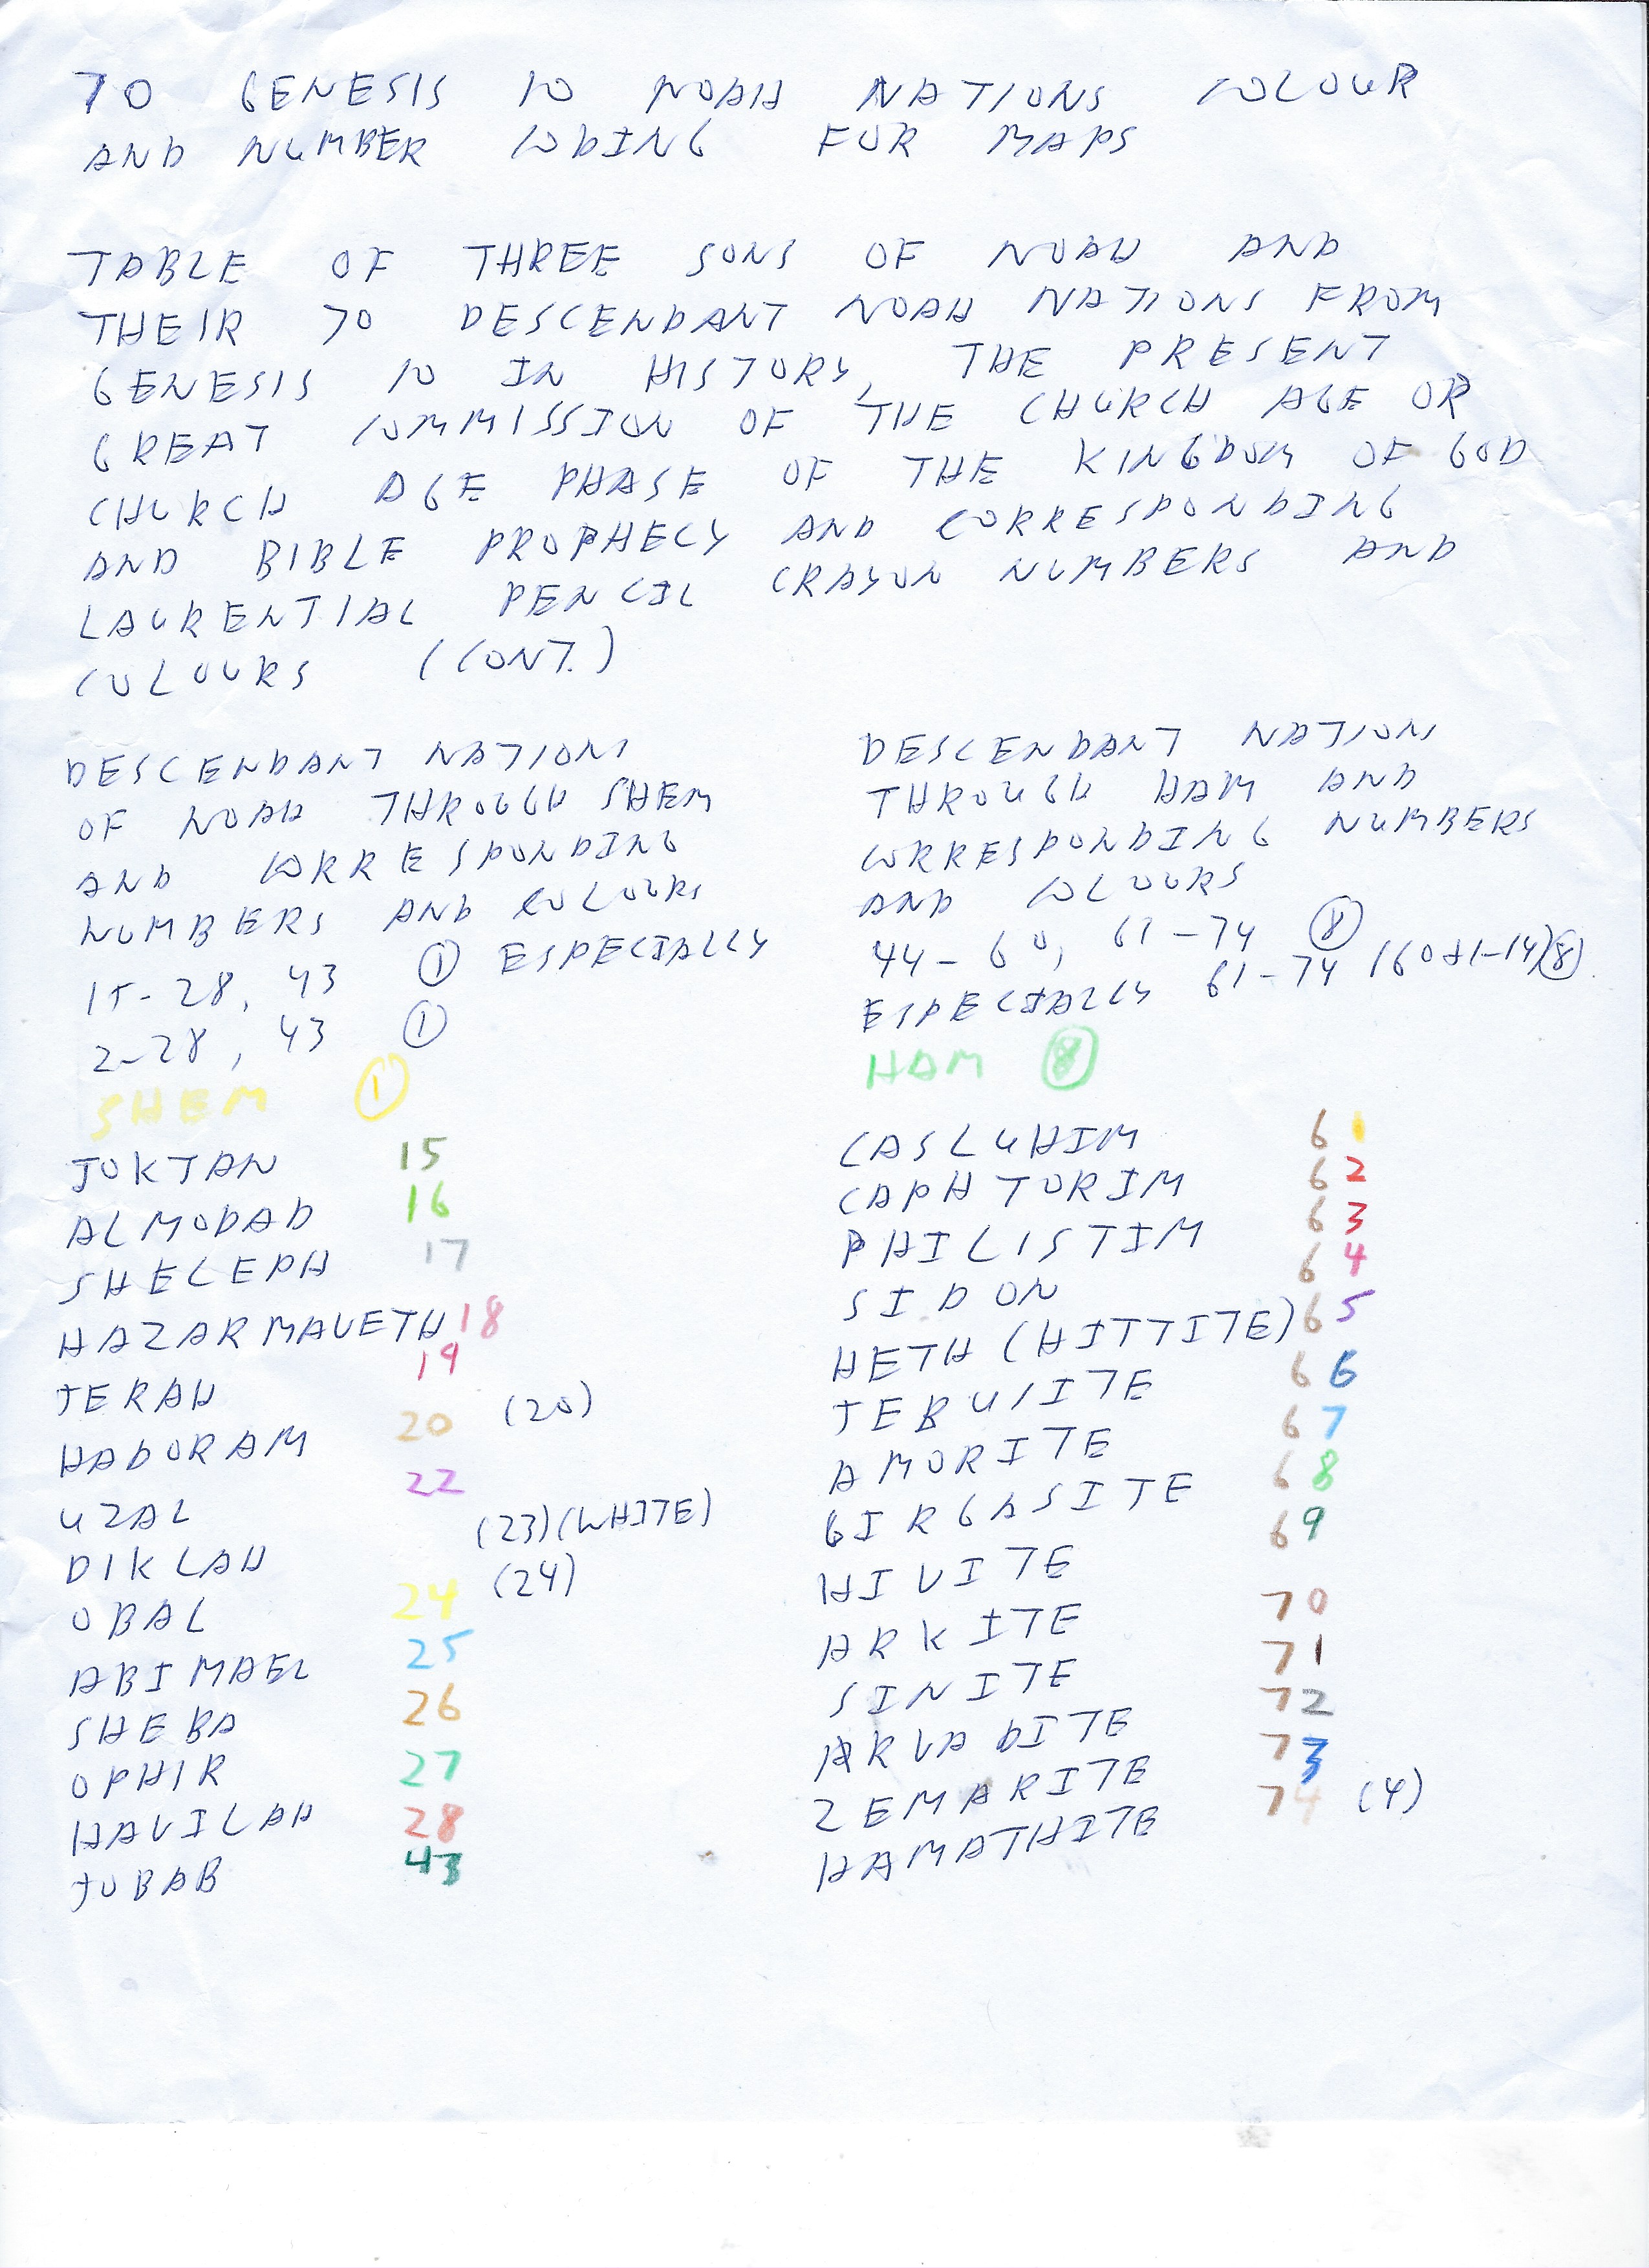 70 GENESIS 10 NOAH NATIONS COLOUR
AND NUMBER CODING FOR MAPS
TABLE OF THREE SONS OF NOAH AND
THEIR 70 DESCENDANT NOAH NATIONS FROM
GENESIS 10 IN HISTORY, THE PRESENT
GREAT COMMISSION OF THE CHURCH AGE OR
CHURCH AGE PHASE OF THE KINGDOM OF GOD
AND BIBLE PROPHECY AND CORRESPONDING
LAURENTIAL PENCIL CRAYON NUMBERS AND
COLOURS (CONT.)
DESCENDANT NATIONS
OF NOAH THROUGH SHEM
AND CORRESPONDING
NUMBERS AND COLOURS
15-28, 43 ① ESPECIALLY
2-28, 43 ①
SHEM ①
JOKTAN 15
ALMODAD 16
SHELEPH 17
HAZARMAVETH 18
JERAH 19
HADORAM 20 (20)
UZAL 22
DIKLAH (23)(WHITE)
OBAL 24 (24)
ABIMAEL 25
SHEBA 26
OPHIR 27
HAVILAH 28
JOBAB 43
DESCENDANT NATIONS
THROUGH HAM AND
CORRESPONDING NUMBERS
AND COLOURS
44-60, 61-74 ⑧
ESPECIALLY 61-74 (60+1-14)⑧
HAM ⑧
CASLUHIM 61
CAPHTORIM 62
PHILISTIM 63
SIDON 64
HETH (HITTITE) 65
JEBUSITE 66
AMORITE 67
GIRGASITE 68
HIVITE 69
ARKITE 70
SINITE 71
ARVADITE 72
ZEMARITE 73
HAMATHITE 74 (4)